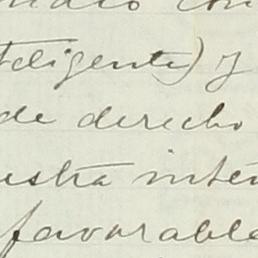 teligente) y
de derecho
estra inter
favorable